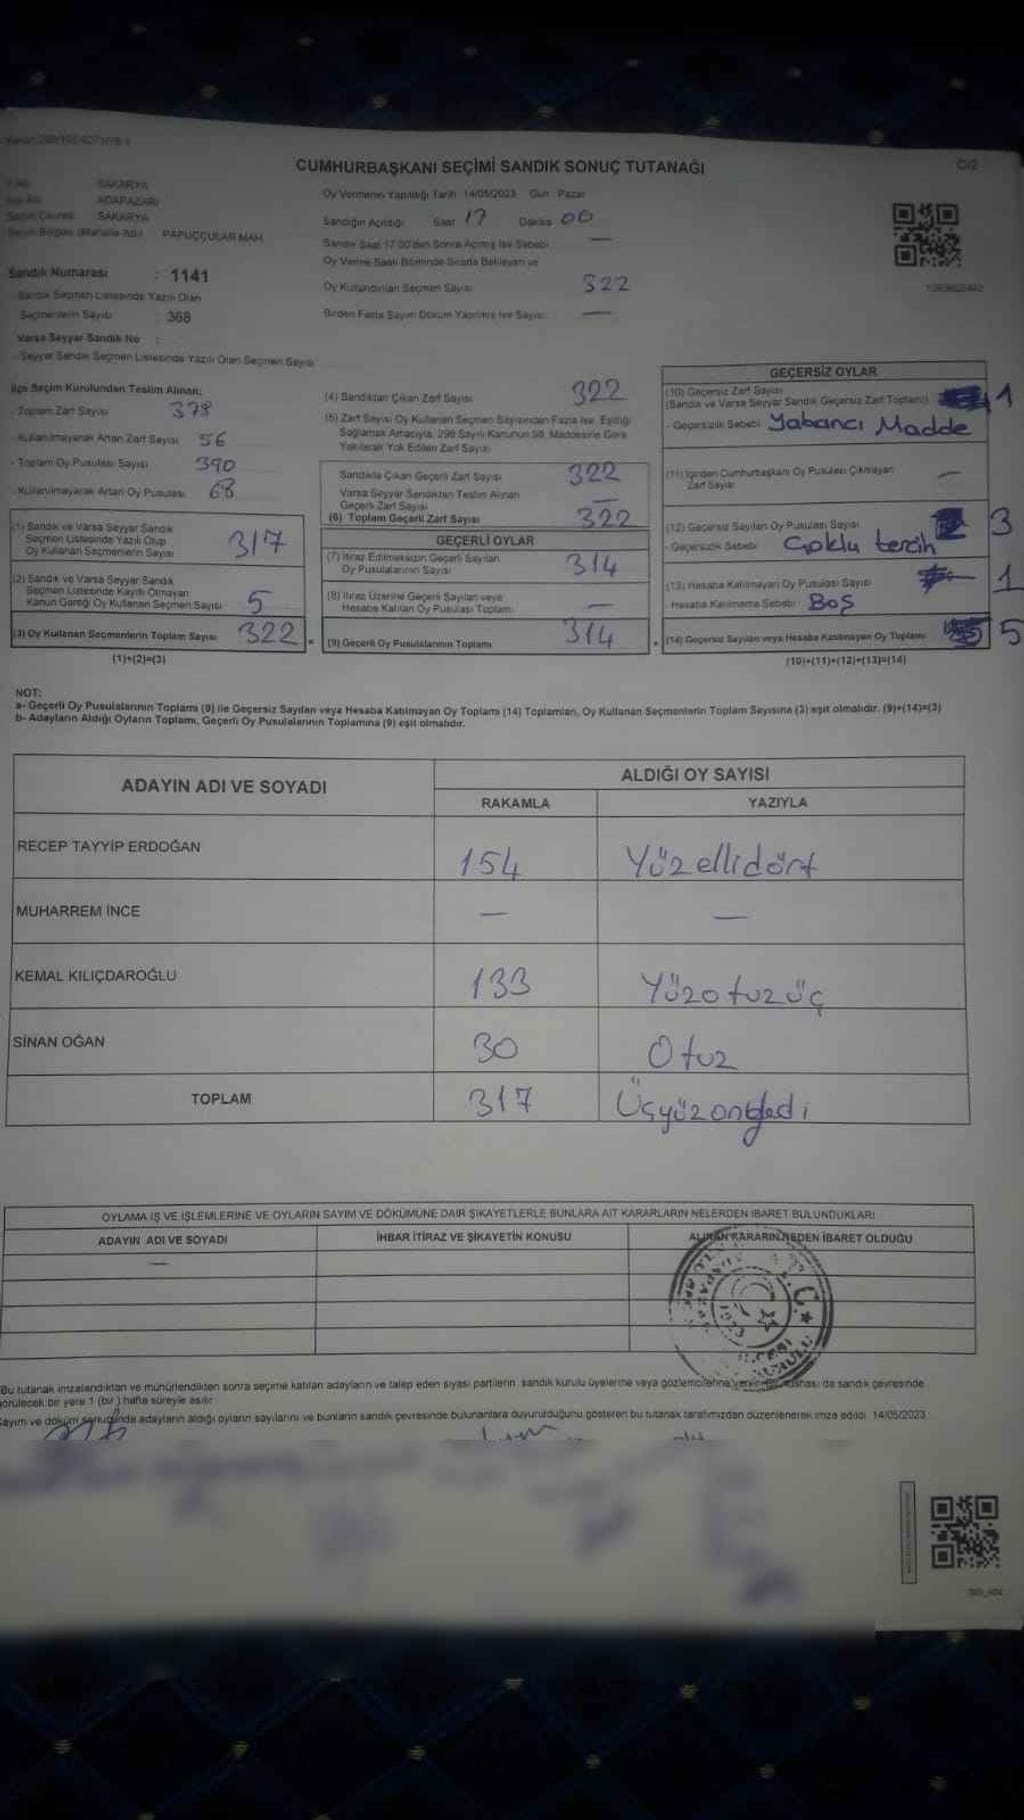 CUMHURBAŞKANI SEÇİMİ SANDIK SONUÇ TUTANAĞI
SAKARYA
ADAPAZARI
SAKARYA
PAPUÇÇULAR MAH
Sandık Numarası : 1141
Sandık Seçmen Listesinde Yazılı Olan
Seçmenlerin Sayısı 368
Varsa Seyyar Sandık No :
Seyyar Sandık Seçmen Listesinde Yazılı Olan Seçmen Sayısı
Oy Vermenin Yapıldığı Tarih 14/05/2023 Gün Pazar
Sandığın Açıldığı Saat 17 Dakika 00
Sandık Saat 17.00'den Sonra Açılmış İse Sebebi —
Oy Verme Saati Bitiminde Sırada Bekleyen ve
Oy Kullandırılan Seçmen Sayısı 322
Birden Fazla Sayım Döküm Yapılmış İse Sayısı —
İlçe Seçim Kurulundan Teslim Alınan:
- Toplam Zarf Sayısı 378
- Kullanılmayarak Artan Zarf Sayısı 56
- Toplam Oy Pusulası Sayısı 390
- Kullanılmayarak Artan Oy Pusulası 68
(1) Sandık ve Varsa Seyyar Sandık
Seçmen Listesinde Yazılı Olup
Oy Kullanan Seçmenlerin Sayısı 317
(2) Sandık ve Varsa Seyyar Sandık
Seçmen Listesinde Kayıtlı Olmayan
Kanun Gereği Oy Kullanan Seçmen Sayısı 5
(3) Oy Kullanan Seçmenlerin Toplam Sayısı 322 =
(1)+(2)=(3)
(4) Sandıktan Çıkan Zarf Sayısı 322
(5) Zarf Sayısı Oy Kullanan Seçmen Sayısından Fazla İse, Eşitliği
Sağlamak Amacıyla, 298 Sayılı Kanunun 98. Maddesine Göre
Yakılarak Yok Edilen Zarf Sayısı
Sandıkta Çıkan Geçerli Zarf Sayısı 322
Varsa Seyyar Sandıktan Teslim Alınan
Geçerli Zarf Sayısı —
(6) Toplam Geçerli Zarf Sayısı 322
GEÇERLİ OYLAR
(7) İtiraz Edilmeksizin Geçerli Sayılan
Oy Pusulalarının Sayısı 314
(8) İtiraz Üzerine Geçerli Sayılan veya
Hesaba Katılan Oy Pusulası Toplamı —
(9) Geçerli Oy Pusulalarının Toplamı 314
GEÇERSİZ OYLAR
(10) Geçersiz Zarf Sayısı
(Sandık ve Varsa Seyyar Sandık Geçersiz Zarf Toplamı) 1
- Geçersizlik Sebebi Yabancı Madde
(11) İçinden Cumhurbaşkanı Oy Pusulası Çıkmayan
Zarf Sayısı —
(12) Geçersiz Sayılan Oy Pusulası Sayısı 3
- Geçersizlik Sebebi Çoklu tercih
(13) Hesaba Katılmayan Oy Pusulası Sayısı 1
- Hesaba Katılmama Sebebi Boş
(14) Geçersiz Sayılan veya Hesaba Katılmayan Oy Toplamı 5
(10)+(11)+(12)+(13)=(14)
NOT:
a- Geçerli Oy Pusulalarının Toplamı (9) ile Geçersiz Sayılan veya Hesaba Katılmayan Oy Toplamı (14) Toplamları, Oy Kullanan Seçmenlerin Toplam Sayısına (3) eşit olmalıdır. (9)+(14)=(3)
b- Adayların Aldığı Oyların Toplamı, Geçerli Oy Pusulalarının Toplamına (9) eşit olmalıdır.
ADAYIN ADI VE SOYADI ALDIĞI OY SAYISI
RAKAMLA YAZIYLA
RECEP TAYYİP ERDOĞAN 154 Yüzellidört
MUHARREM İNCE — —
KEMAL KILIÇDAROĞLU 133 Yüzotuzüç
SİNAN OĞAN 30 Otuz
TOPLAM 317 Üçyüzonyedi
OYLAMA İŞ VE İŞLEMLERİNE VE OYLARIN SAYIM VE DÖKÜMÜNE DAİR ŞİKAYETLERLE BUNLARA AİT KARARLARIN NELERDEN İBARET BULUNDUKLARI
ADAYIN ADI VE SOYADI İHBAR İTİRAZ VE ŞİKAYETİN KONUSU ALINAN KARARIN NEDEN İBARET OLDUĞU
—
Bu tutanak imzalandıktan ve mühürlendikten sonra seçime katılan adayların ve talep eden siyasi partilerin sandık kurulu üyelerine veya gözlemcilerine da sandık çevresinde
görülecek bir yere 1 (bir) hafta süreyle asılır.
Sayım ve döküm sonucunda adayların aldığı oyların sayılarını ve bunların sandık çevresinde bulunanlara duyurulduğunu gösteren bu tutanak tarafımızdan düzenlenerek imza edildi. 14/05/2023